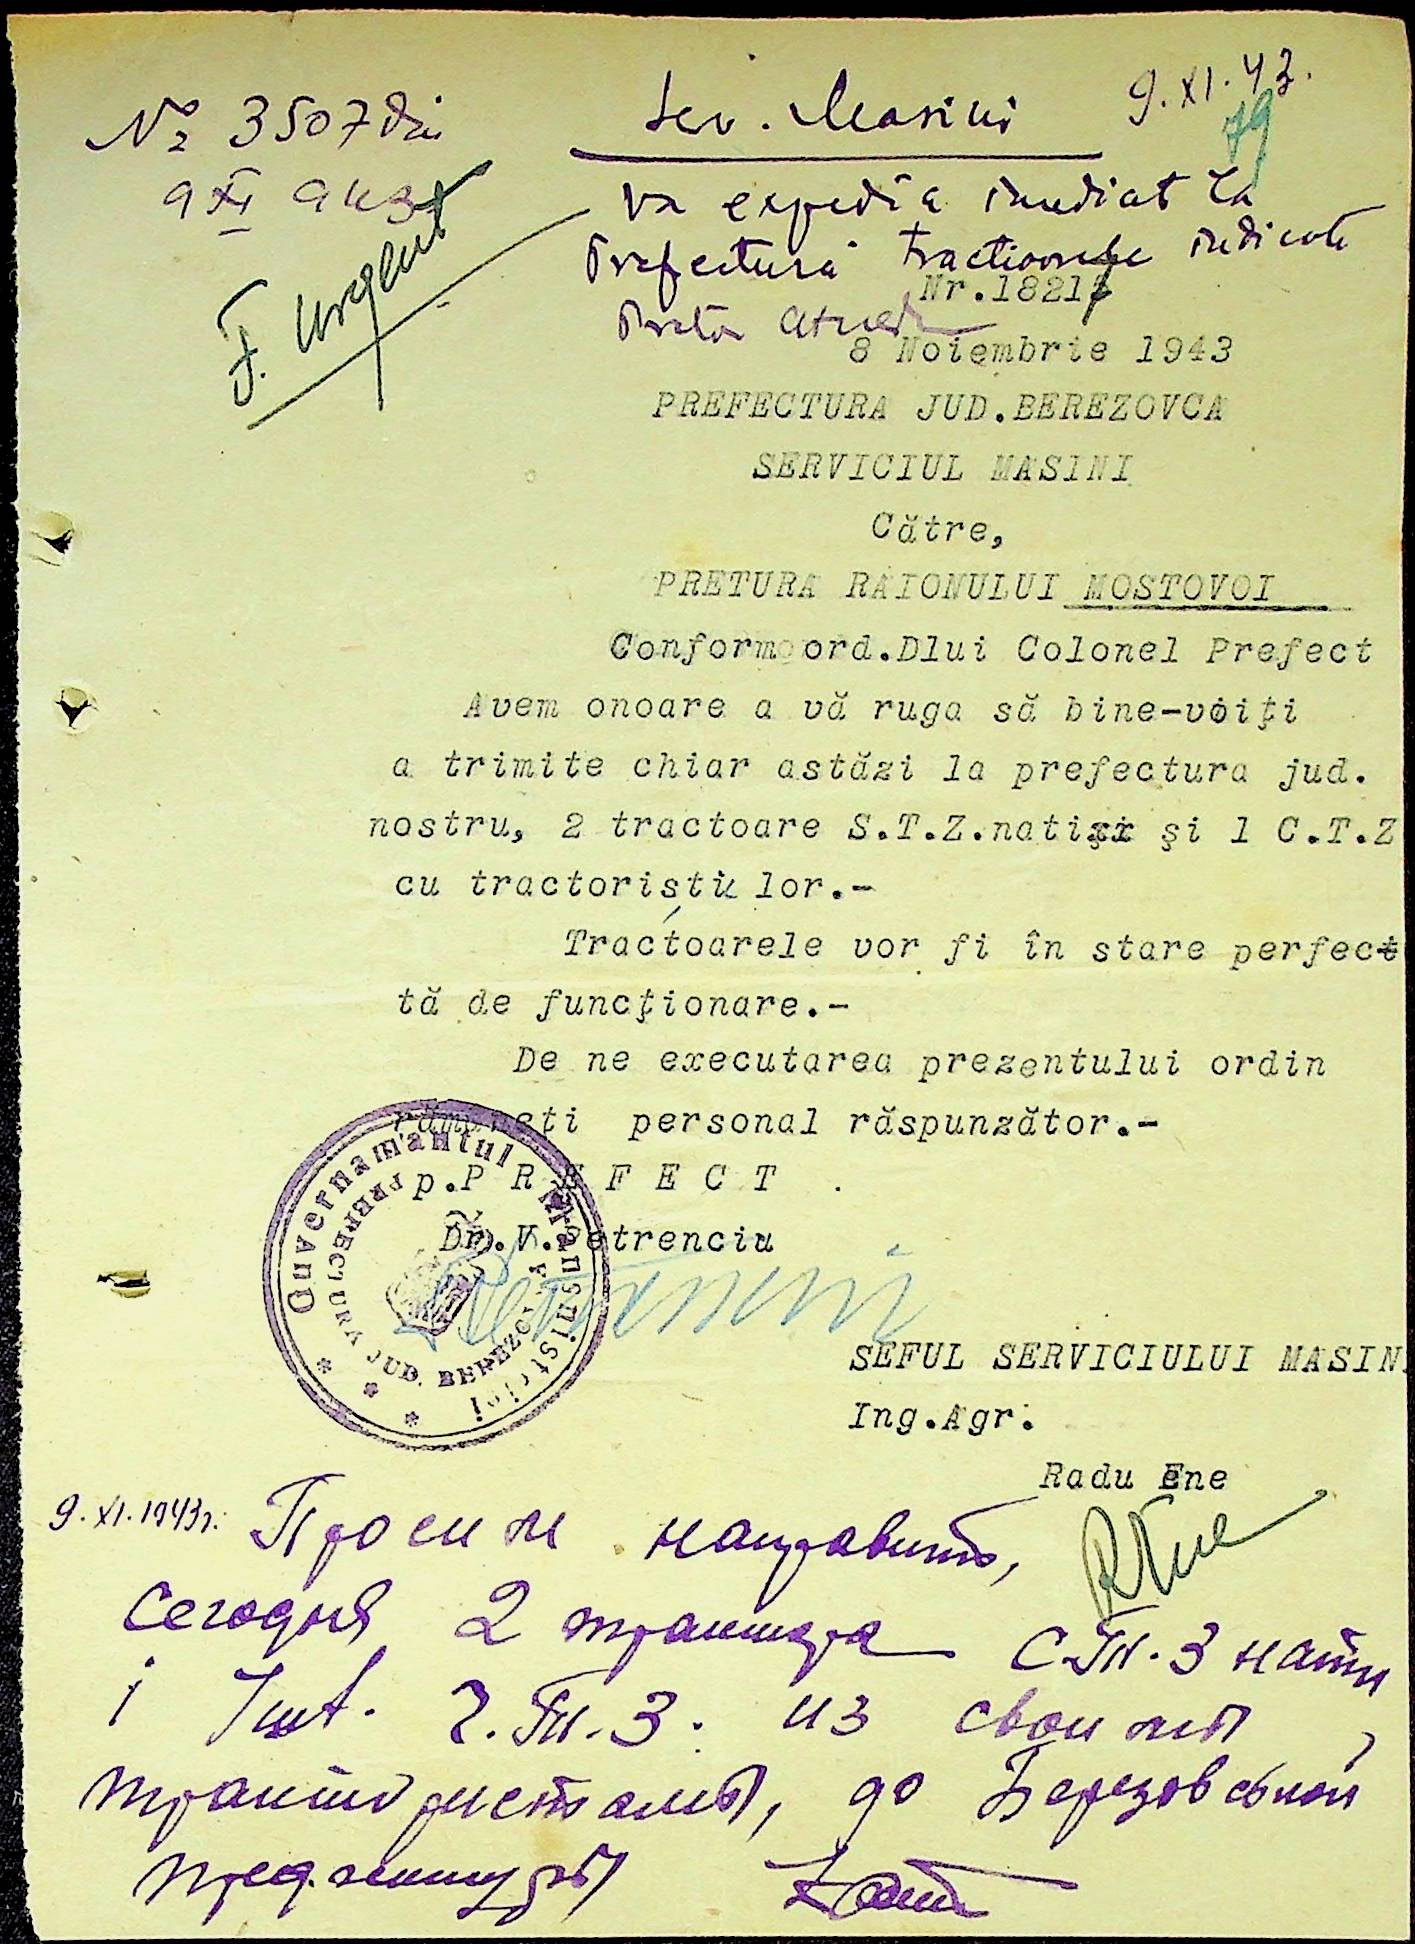 № 3507 din
9 XI 943
F. Urgent
9.XI.43.
79
Serv. Masini
Va expedia imediat la
Prefectura tractoarele indicate
Nr.18217
8 Noiembrie 1943
PREFECTURA JUD.BEREZOVCA
SERVICIUL MASINI
Către,
PRETURA RAIONULUI MOSTOVOI
Conform ord.Dlui Colonel Prefect
Avem onoare a vă ruga să bine-voiţi
a trimite chiar astăzi la prefectura jud.
nostru, 2 tractoare S.T.Z.nati şi 1 C.T.Z
cu tractoristii lor.-
Tractoarele vor fi în stare perfect
tă de funcţionare.-
De ne executarea prezentului ordin
rămâneţi personal răspunzător.-
p.P R E F E C T .
Dr.V.Petrenciu
Guvernamantul Transnistriei
PREFECTURA JUD. BEREZOVCA
SEFUL SERVICIULUI MASINI
Ing.Agr.
Radu Ene
REne
9.XI.1943г. Просим направить,
сегодня 2 трактора С.Т.З нати
1 шт. Ч.Т.З. из своими
трактористами, до Березовской
префектуры